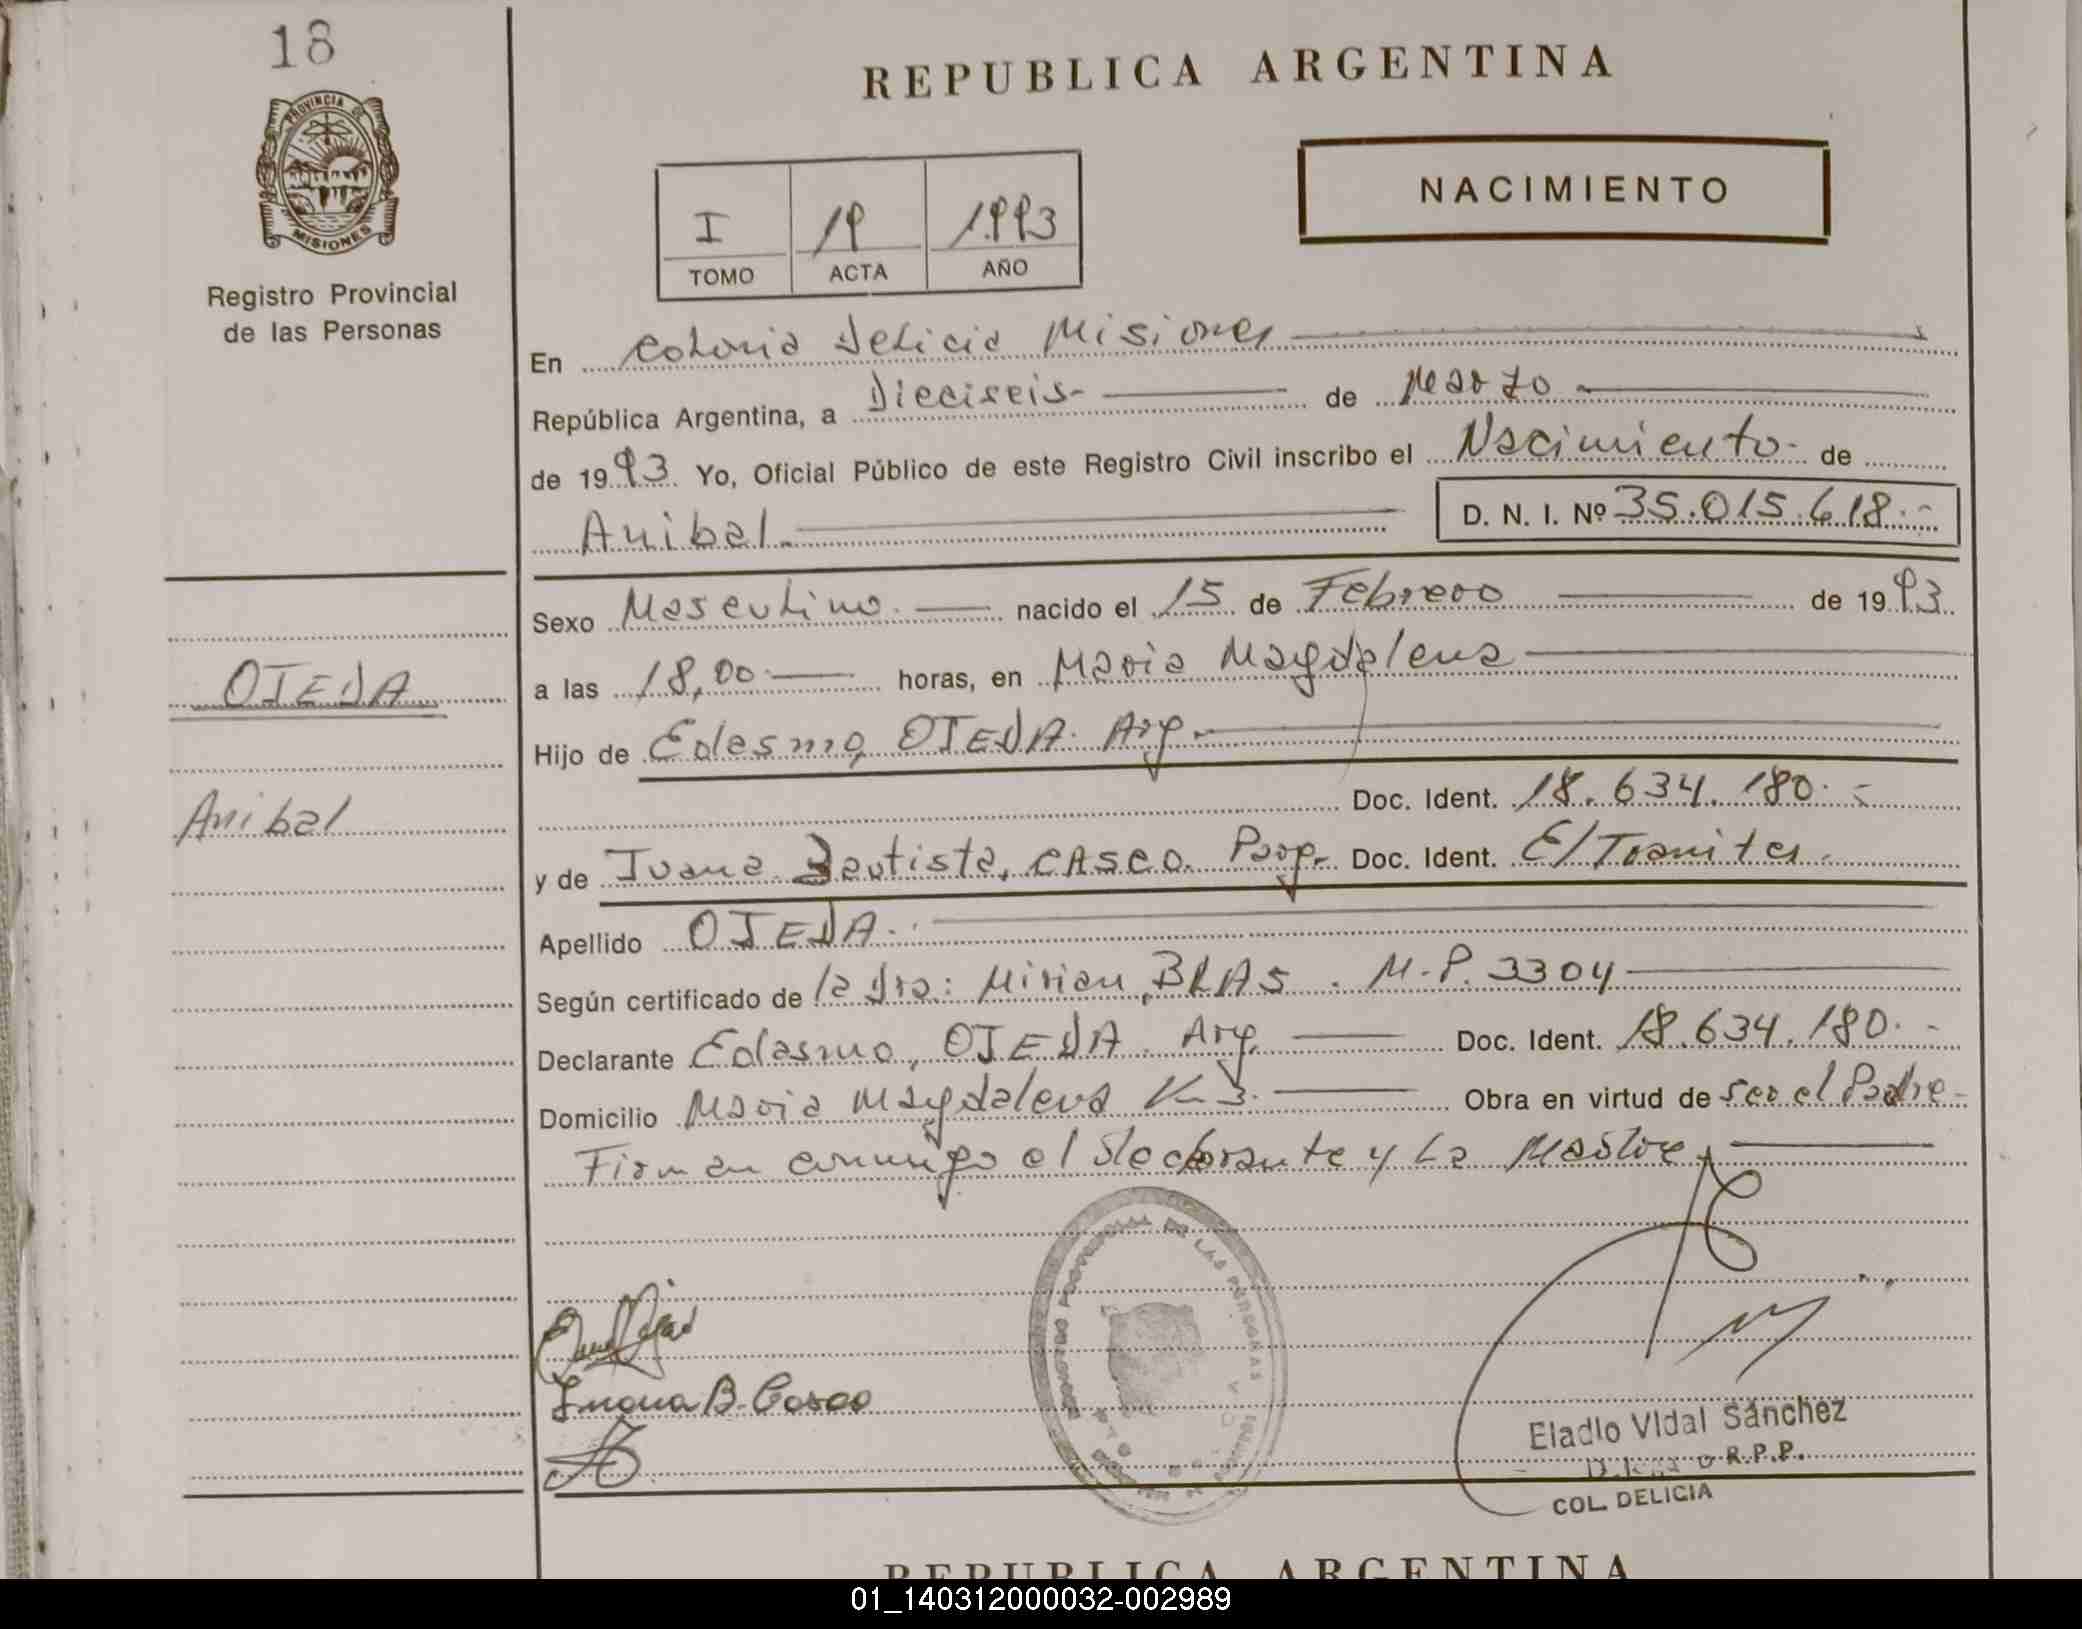 18
REPUBLICA ARGENTINA
PROVINCIA DE
MISIONES
Registro Provincial
de las Personas
NACIMIENTO
I 19 1993
TOMO ACTA AÑO
En Colonia Delicia Misiones
República Argentina, a Dieciseis- de Marzo
de 1993 Yo, Oficial Público de este Registro Civil inscribo el Nacimiento de
Anibal D. N. I. Nº 35.015.618.-
Sexo Masculino. nacido el 15 de Febrero de 1993
a las 18,00 horas, en Maria Magdalena
Hijo de Edesmo, OJEDA. Arg.
Doc. Ident. 18.634.180.-
y de Juana Bautista, CASCO. Parg. Doc. Ident. E/Tramites.
Apellido OJEDA.
Según certificado de la Dra: Mirian, BLAS. M.P. 3304
Declarante Edasmo, OJEDA. Arg. Doc. Ident. 18.634.180.-
Domicilio Maria Magdalena Km 3. Obra en virtud de ser el Padre-
Firman conmigo el declarante y La Madre
OJEDA
Anibal
Juana B. Casco
Eladio Vidal Sánchez
R.P.P.
COL. DELICIA
REPUBLICA ARGENTINA
01_140312000032-002989